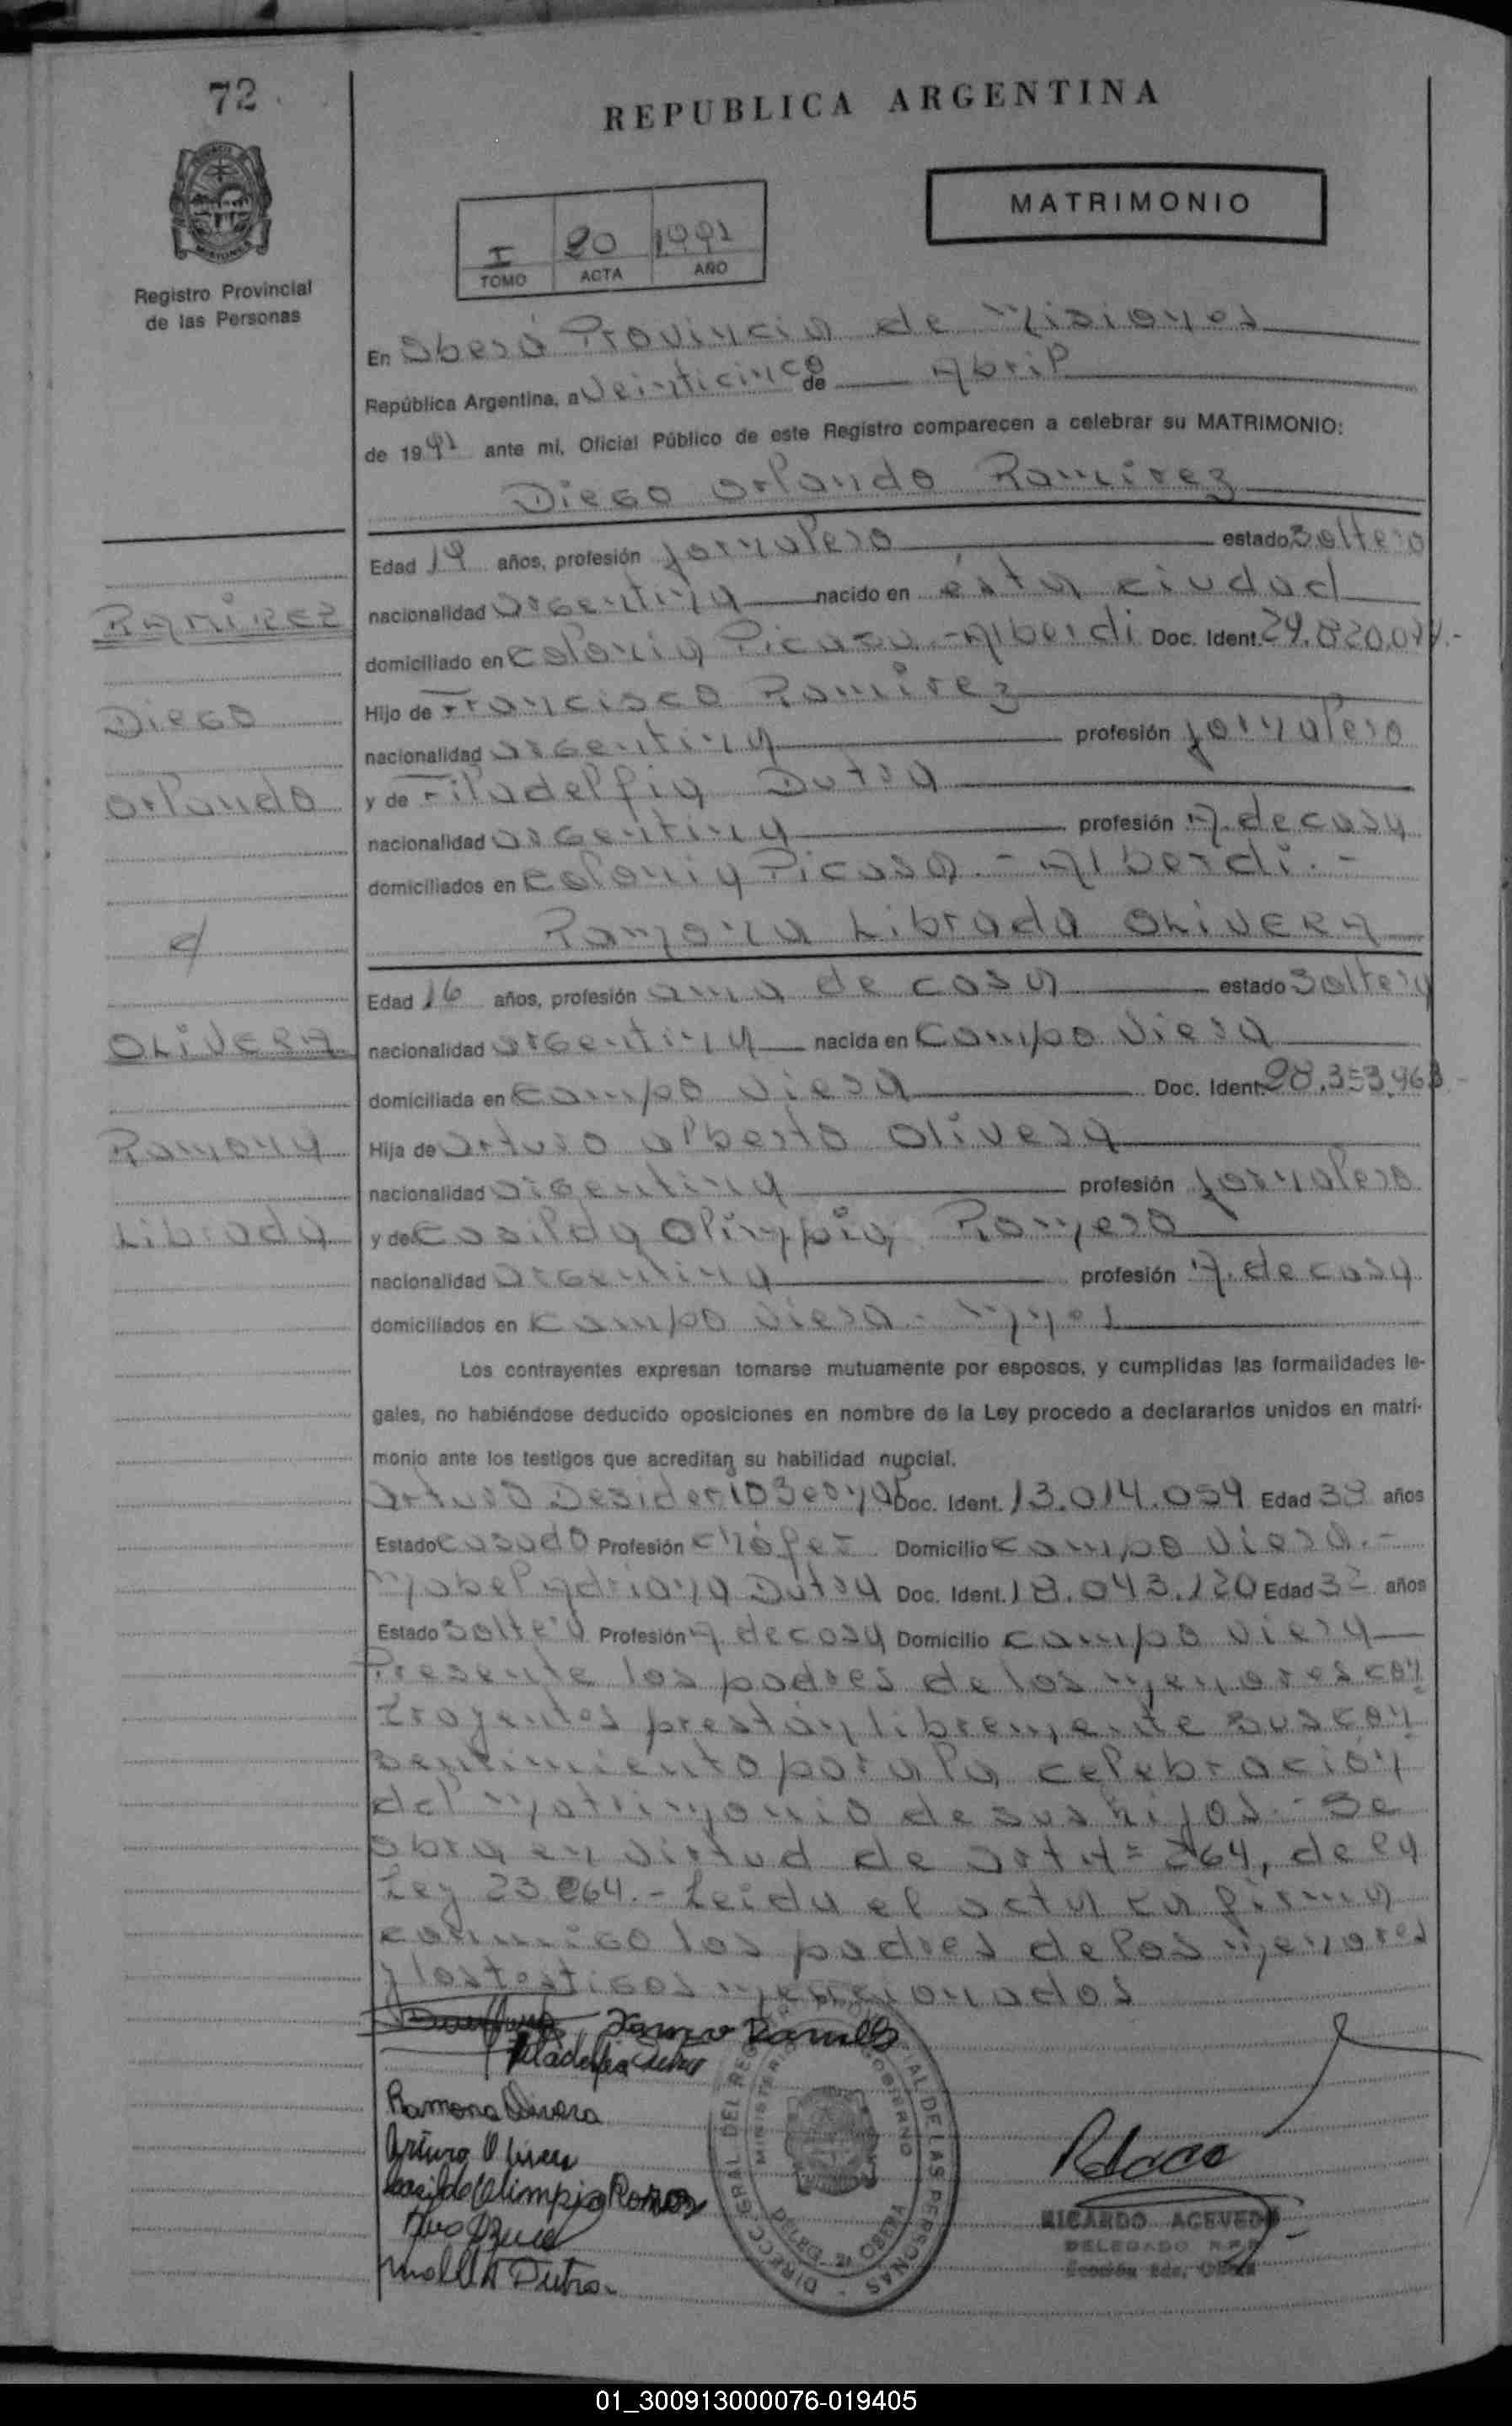 72
REPUBLICA ARGENTINA
MATRIMONIO
Registro Provincial
de las Personas
I 80 1991
TOMO ACTA AÑO
En Oberá Provincia de Misiones
República Argentina, a Veinticinco de Abril
de 1991 ante mi, Oficial Público de este Registro comparecen a celebrar su MATRIMONIO:
Diego Orlando Ramirez
Edad 19 años, profesión jornalero estado Soltero
nacionalidad argentina nacido en ésta ciudad
domiciliado en Colonia Picasa - Alberdi Doc. Ident.
Hijo de Francisco Ramirez
nacionalidad argentina profesión jornalero
y de Filadelfia Dutra
nacionalidad argentina profesión A. de casa
domiciliados en Colonia Picasa - Alberdi.-
Ramona Librada OLIVERA
Edad 16 años, profesión ama de casa estado Soltera
nacionalidad argentina nacida en Campo Viera
domiciliada en Campo Viera Doc. Ident. 28.353.963-
Hija de Arturo Alberto Olivera
nacionalidad argentina profesión jornalero
y de Casilda Olimpia Romero
nacionalidad argentina profesión A. de casa
domiciliados en Campo Viera - Mnes
RAMIREZ
Diego
Orlando
c/
OLIVERA
Ramona
Librada
Los contrayentes expresan tomarse mutuamente por esposos, y cumplidas las formalidades le-
gales, no habiéndose deducido oposiciones en nombre de la Ley procedo a declararlos unidos en matri-
monio ante los testigos que acreditan su habilidad nupcial.
Arturo Desiderio Doc. Ident. 13.014.059 Edad 38 años
Estado casado Profesión chófer Domicilio Campo Viera.-
Mabel Adriana Dutra Doc. Ident. 18.043.120 Edad 32 años
Estado Soltera Profesión A. de casa Domicilio Campo Viera
Presente los padres de los menores con-
trayentes prestan libremente sus con-
sentimiento para la celebración
del matrimonio de sus hijos.- Se
obra en virtud de art Nº 264, de la
Ley 23.264.- Leida el acta la firma
conmigo los padres de los menores
y los testigos mencionados
Filadelfia Dutra
Ramona Olivera
Arturo Olivera
Casilda Olimpia Romero
Dutra
DIRECC. GRAL. DEL REG. PROVINCIAL DE LAS PERSONAS
MINISTERIO DE GOBIERNO
OBERA
RICARDO ACEVEDO
DELEGADO R.P.P.
Sección 2da. Oberá
01_300913000076-019405